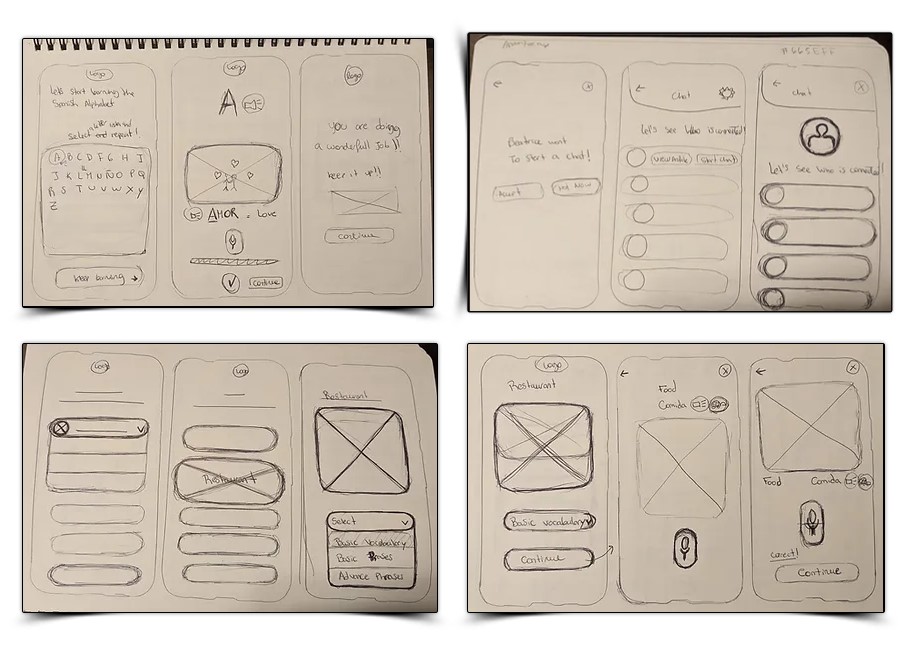 Logo
Let's start learning the
Spanish Alphabet
Select a letter listen and
and repeat!
A B C D F G H I
J K L M N Ñ O P Q
R S T U V W X Y
Z
keep learning
Logo
A
AMOR = Love
Continue
Logo
You are doing
a wonderfull Job!!
keep it up!!
Continue
#665EFF
x
Beatrice want
To start a chat!
Chat Now
Chat
Let's see who is connected!
View Profile
Start chat
Chat
x
Let's see who is connected!
Logo
Logo
Restaurant
Restaurant
Select
Basic Vocabulary
Basic Phrases
Advance Phrases
Logo
Restaurant
Basic vocabulary
Continue
x
Food
Comida
x
Food Comida
Correct!
Continue